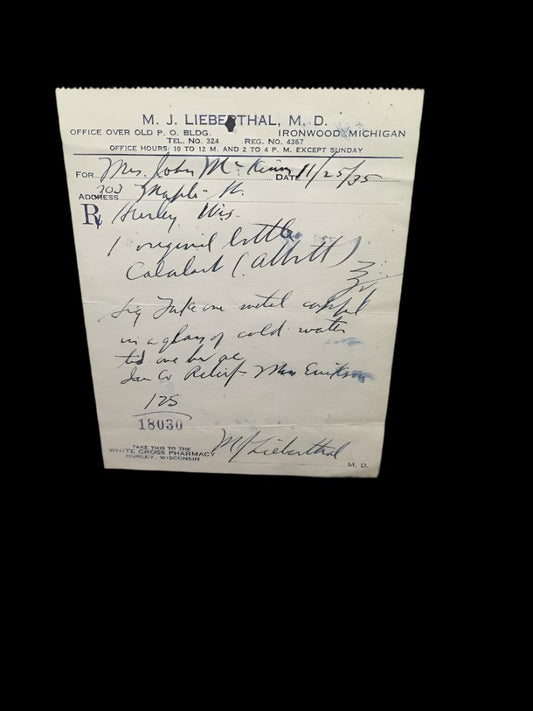 M. J. LIEBERTHAL, M. D.
OFFICE OVER OLD P. O. BLDG. IRONWOOD, MICHIGAN
TEL. NO. 324 REG. NO. 4367
OFFICE HOURS: 10 TO 12 M. AND 2 TO 4 P. M. EXCEPT SUNDAY
FOR Mrs. John DATE 11/25/35
ADDRESS Maple St.
R Hurley Wis.
1 original bottle
(Abbott)
Sig Take one
in a glass of cold water
tid one hr
Co Relief - Miss
125
18030
TAKE THIS TO THE
WHITE CROSS PHARMACY
HURLEY, WISCONSIN
MJ Lieberthal
M. D.